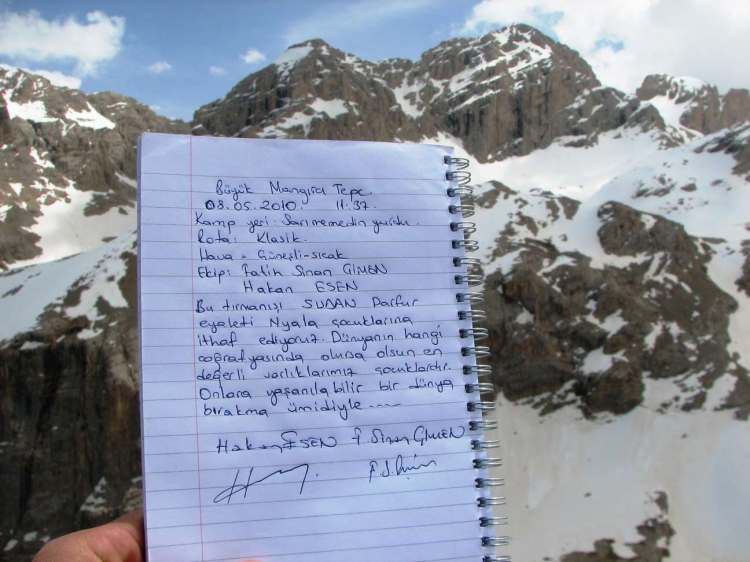 Büyük Mangırcı Tepe.
03.05.2010 11:37
Kamp yeri: Sarımemedin yurdu.
Rota: Klasik.
Hava = Güneşli-sıcak
Ekip: Fatih Sinan ÇİMEN
Hakan ESEN
Bu tırmanışı SUDAN Darfur
eyaleti Nyala çocuklarına
ithaf ediyoruz. Dünyanın hangi
coğrafyasında olursa olsun en
değerli varlıklarımız çocuklardır.
Onlara yaşanılabilir bir dünya
bırakma ümidiyle.....
Hakan ESEN F Sinan ÇİMEN